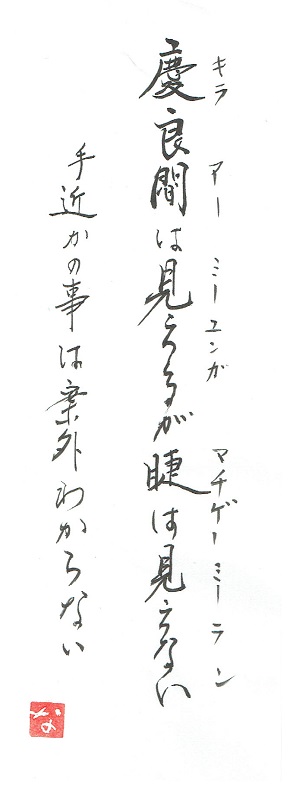 キラ アー ミーユンガ マチゲー ミーラン
慶良間は見えるが睫は見えない
手近かの事は案外わからない